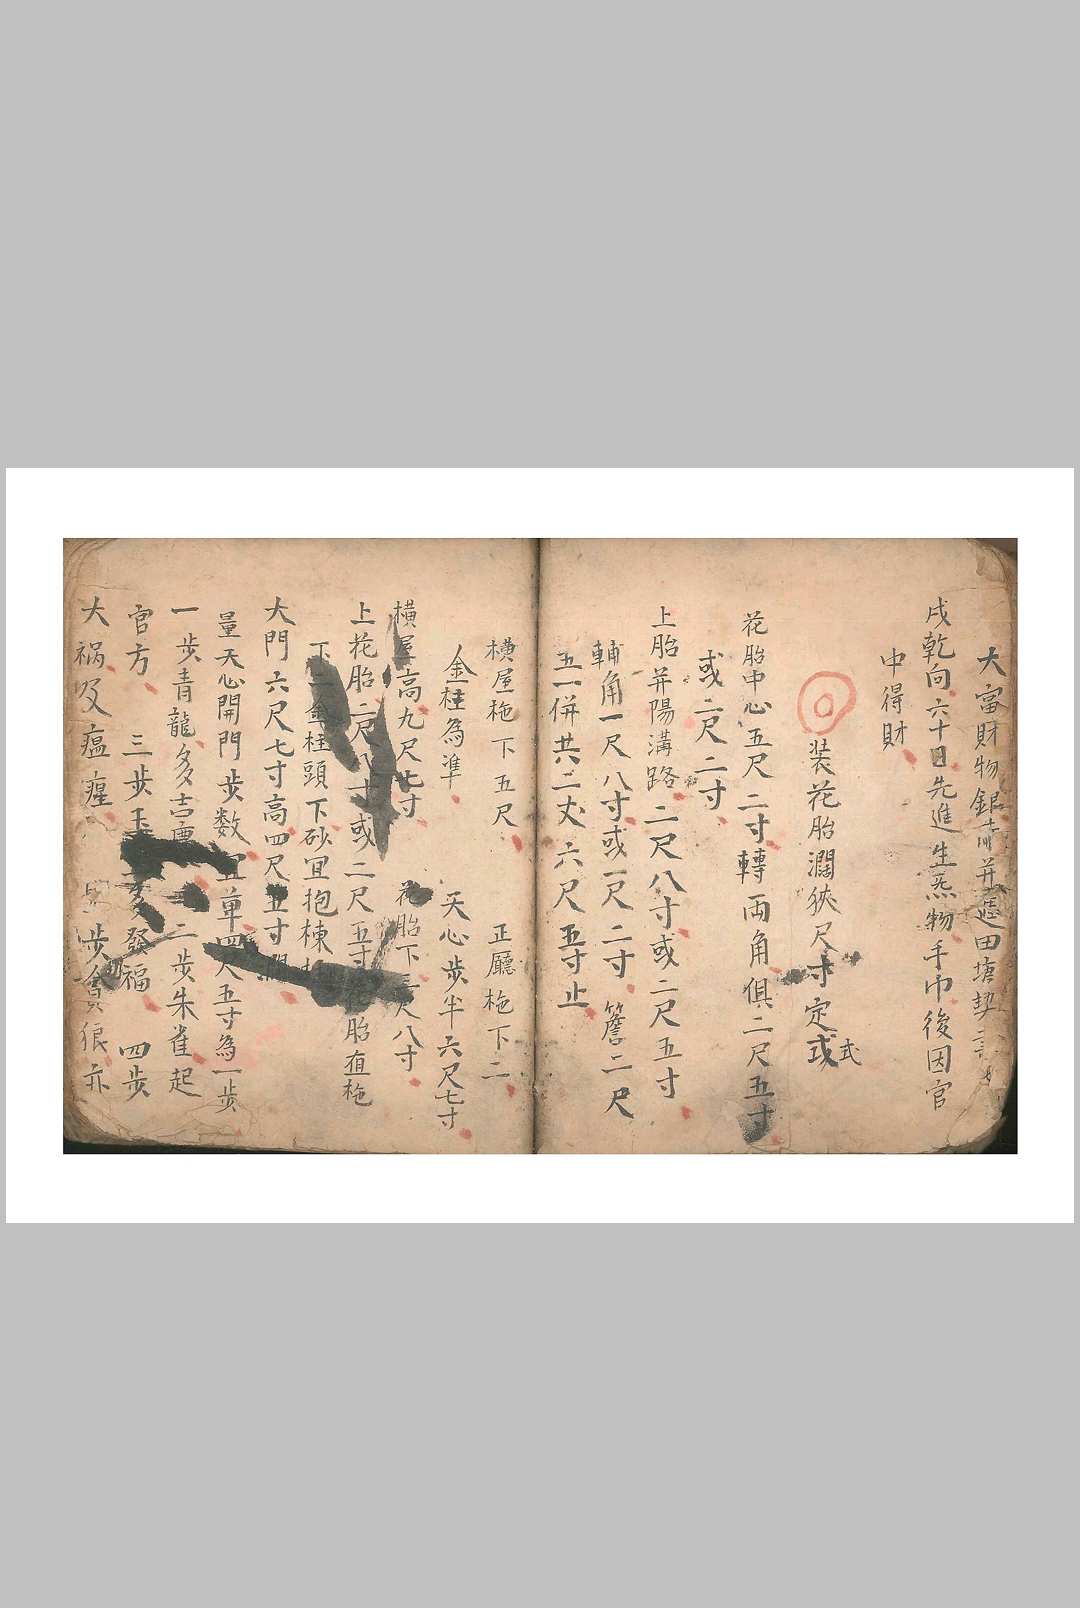 大富財物銀 并 田塘契
戌乾向六十日先進生炁物手巾後因官
中得財
装花胎濶狹尺寸定或式
花胎中心五尺二寸轉両角俱二尺五寸
或二尺二寸
上胎并陽溝路二尺八寸或二尺五寸
輔角一尺八寸或一尺二寸簷二尺
五一併共二丈六尺五寸止
橫屋柂下五尺 正廳柂下二
金柱為準 天心步半六尺七寸
橫屋高九尺七寸 花胎下二尺八寸
上花胎二尺八寸或二尺五寸花胎宜柂
下二金柱頭下砂宜抱棟
大門六尺七寸高四尺五寸
量天心開門步数宜單四尺五寸為一步
一步青龍多吉慶 二步朱雀起
官方 三步玉 多發福 四步
大禍及瘟 步貪狼亦